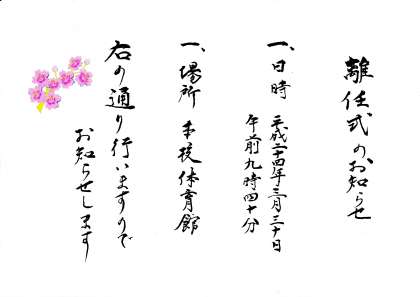 離任式のお知らせ
一、日時 平成二十四年三月三十日
午前九時四十分
一、場所 本校体育館
右の通り行いますので
お知らせします